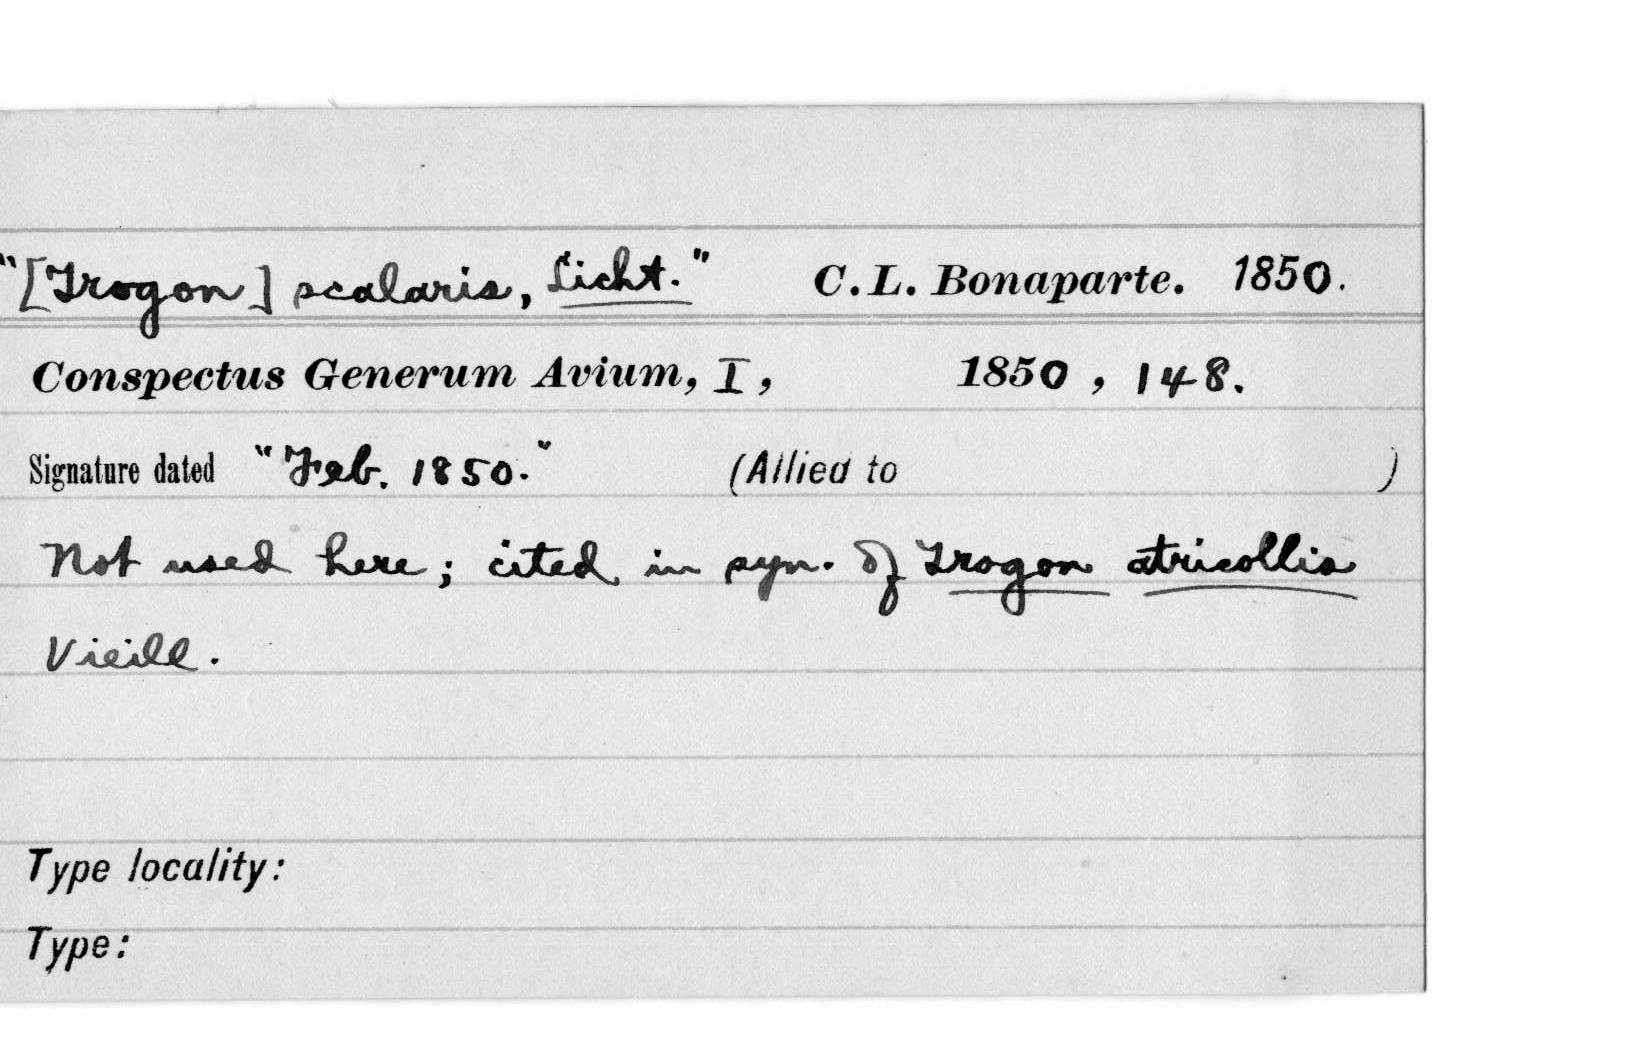 "[Trogon] scalaris, Licht." C. L. Bonaparte. 1850.
Conspectus Generum Avium, I, 1850, 148.
Signature dated "Feb. 1850." (Allied to )
Not used here; cited in syn. of Trogon atricollis
Vieill.
Type locality:
Type: